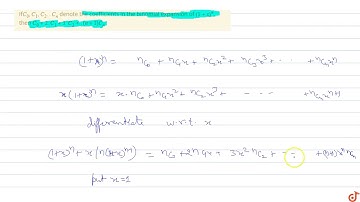 If C₀, C₁, C₂...Cₙ denote the coefficients in the binomial expansion of (1 + x)ⁿ,
then C₀ + 2.C₁ + 3.C₂ +
(1+x)ⁿ = nC₀ + nC₁x + nC₂x² + nC₃x³ + ... + nCₙxⁿ
x(1+x)ⁿ = x.nC₀ + nC₁x² + nC₂x³ + ... + nCₙxⁿ⁺¹
differentiate w.r.t. x
(1+x)ⁿ + x(n(1+x)ⁿ⁻¹) = nC₀ + 2nC₁x + 3x²nC₂ + ... + (n+1)xⁿnCₙ
put x=1